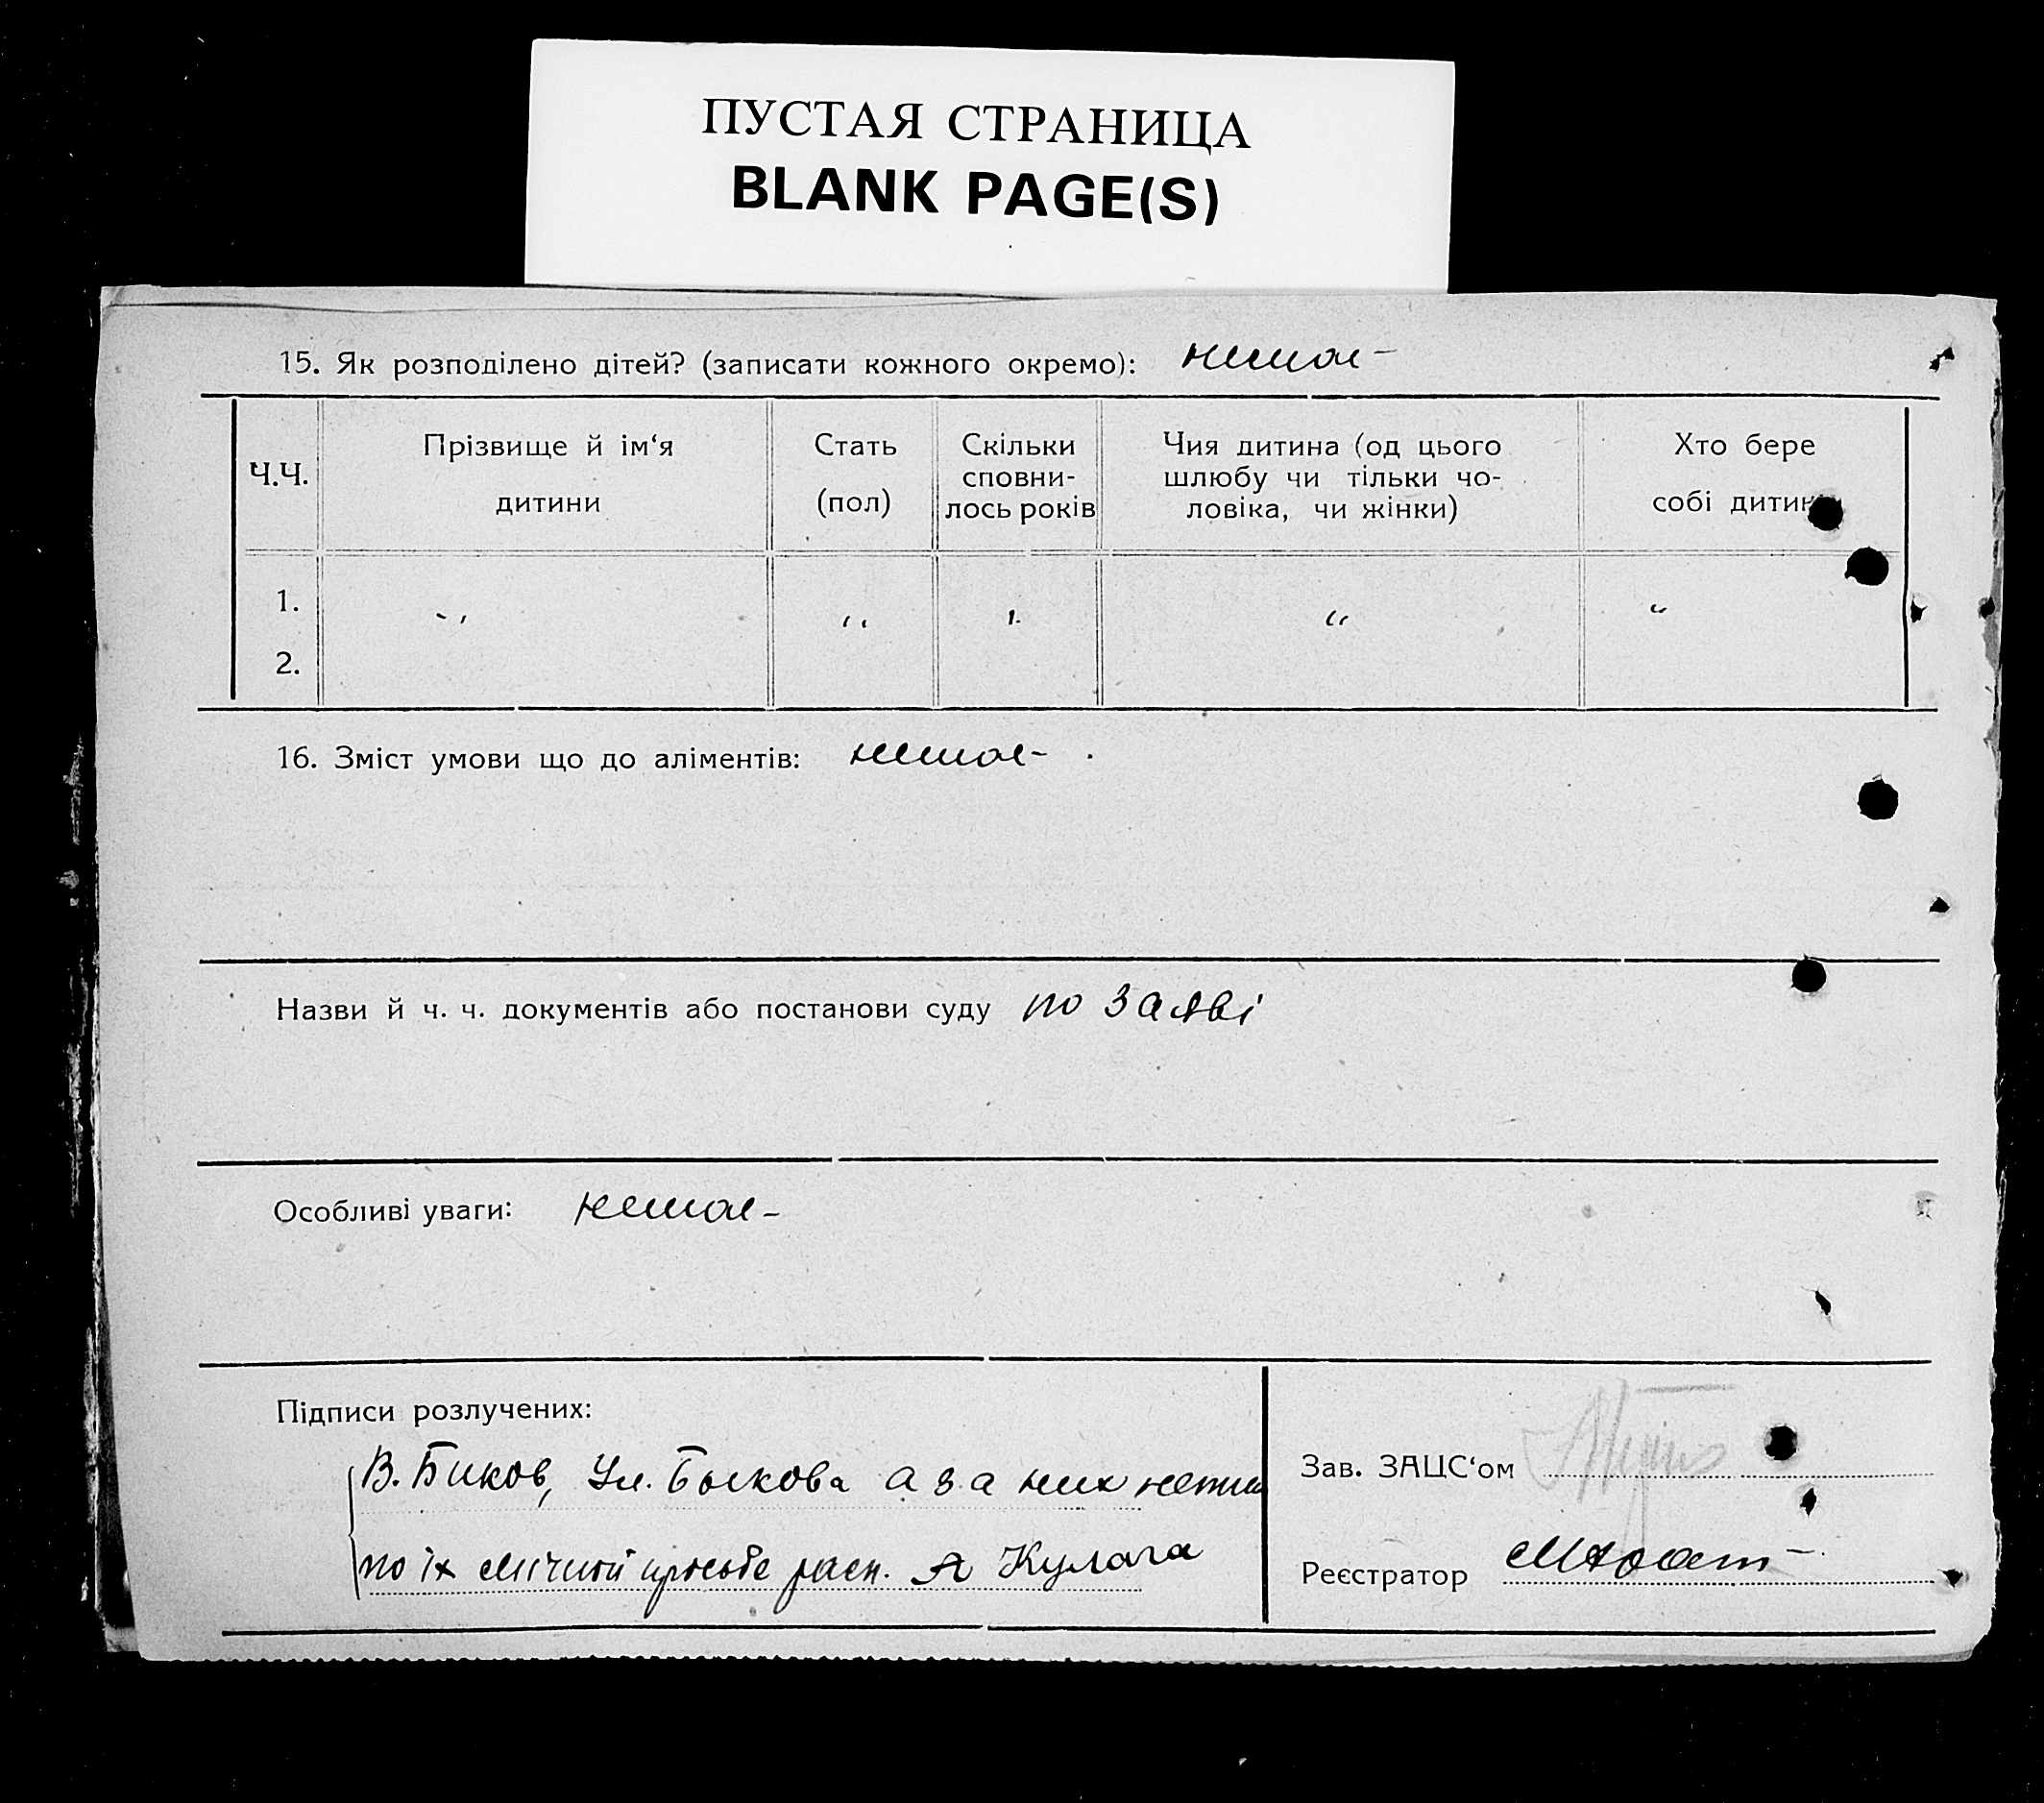 ПУСТАЯ СТРАНИЦА
BLANK PAGE(S)
15. Як розподілено дітей? (записати кожного окремо): немає –
Ч.Ч.
Прізвище й ім‘я
дитини
Стать
(пол)
Скільки
сповни-
лось років
Чия дитина (од цього
шлюбу чи тільки чо-
ловіка, чи жінки)
Хто бере
собі дитину
1. „ „ „ „ „
2.
16. Зміст умови що до аліментів: немає – .
Назви й ч. ч. документів або постанови суду по заяві
Особливі уваги: немає –
Підписи розлучених:
В. Биков, Ул. Быкова а за них
по їх просьбе расп. А Кулага
Зав. ЗАЦС‘ом
Реєстратор